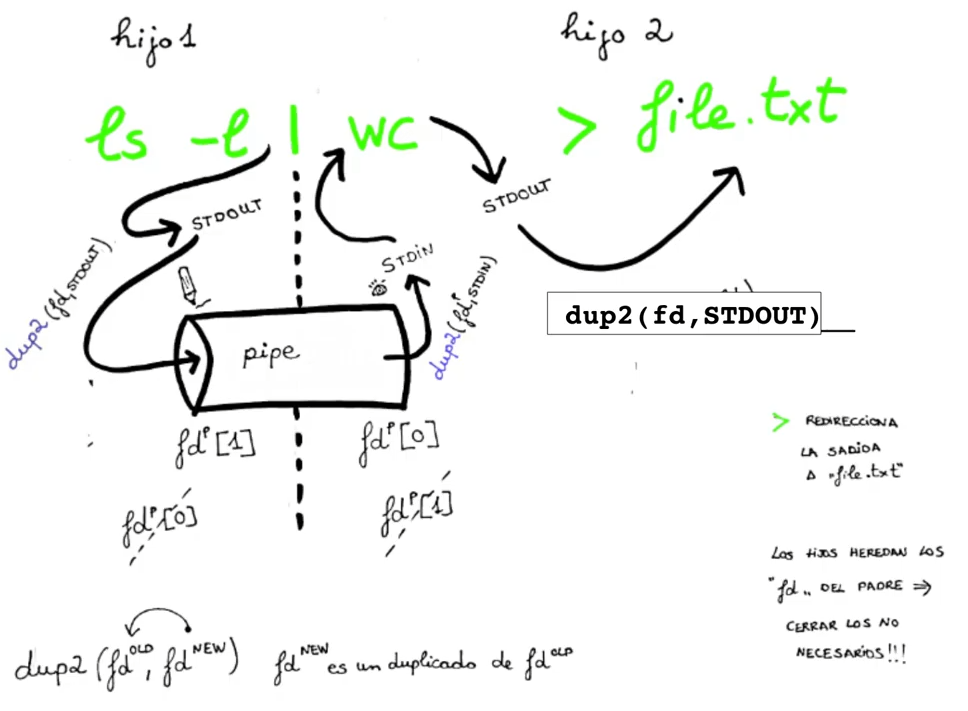 hijo 1
hijo 2
ls -l | WC > file.txt
STDOUT
STDOUT
STDIN
dup2 (fd, STDOUT)
dup2 (fdᴾ, STDIN)
dup2(fd,STDOUT)
pipe
fdᴾ[1]
fdᴾ[0]
fdᴾ[0]
fdᴾ[1]
> REDIRECCIONA
LA SADIDA
A "file.txt"
LOS HIJOS HEREDAN LOS
"fd" DEL PADRE ⇒
CERRAR LOS NO
NECESARIOS!!!
dup2 (fd^OLD, fd^NEW) fd^NEW es un duplicado de fd^OLD